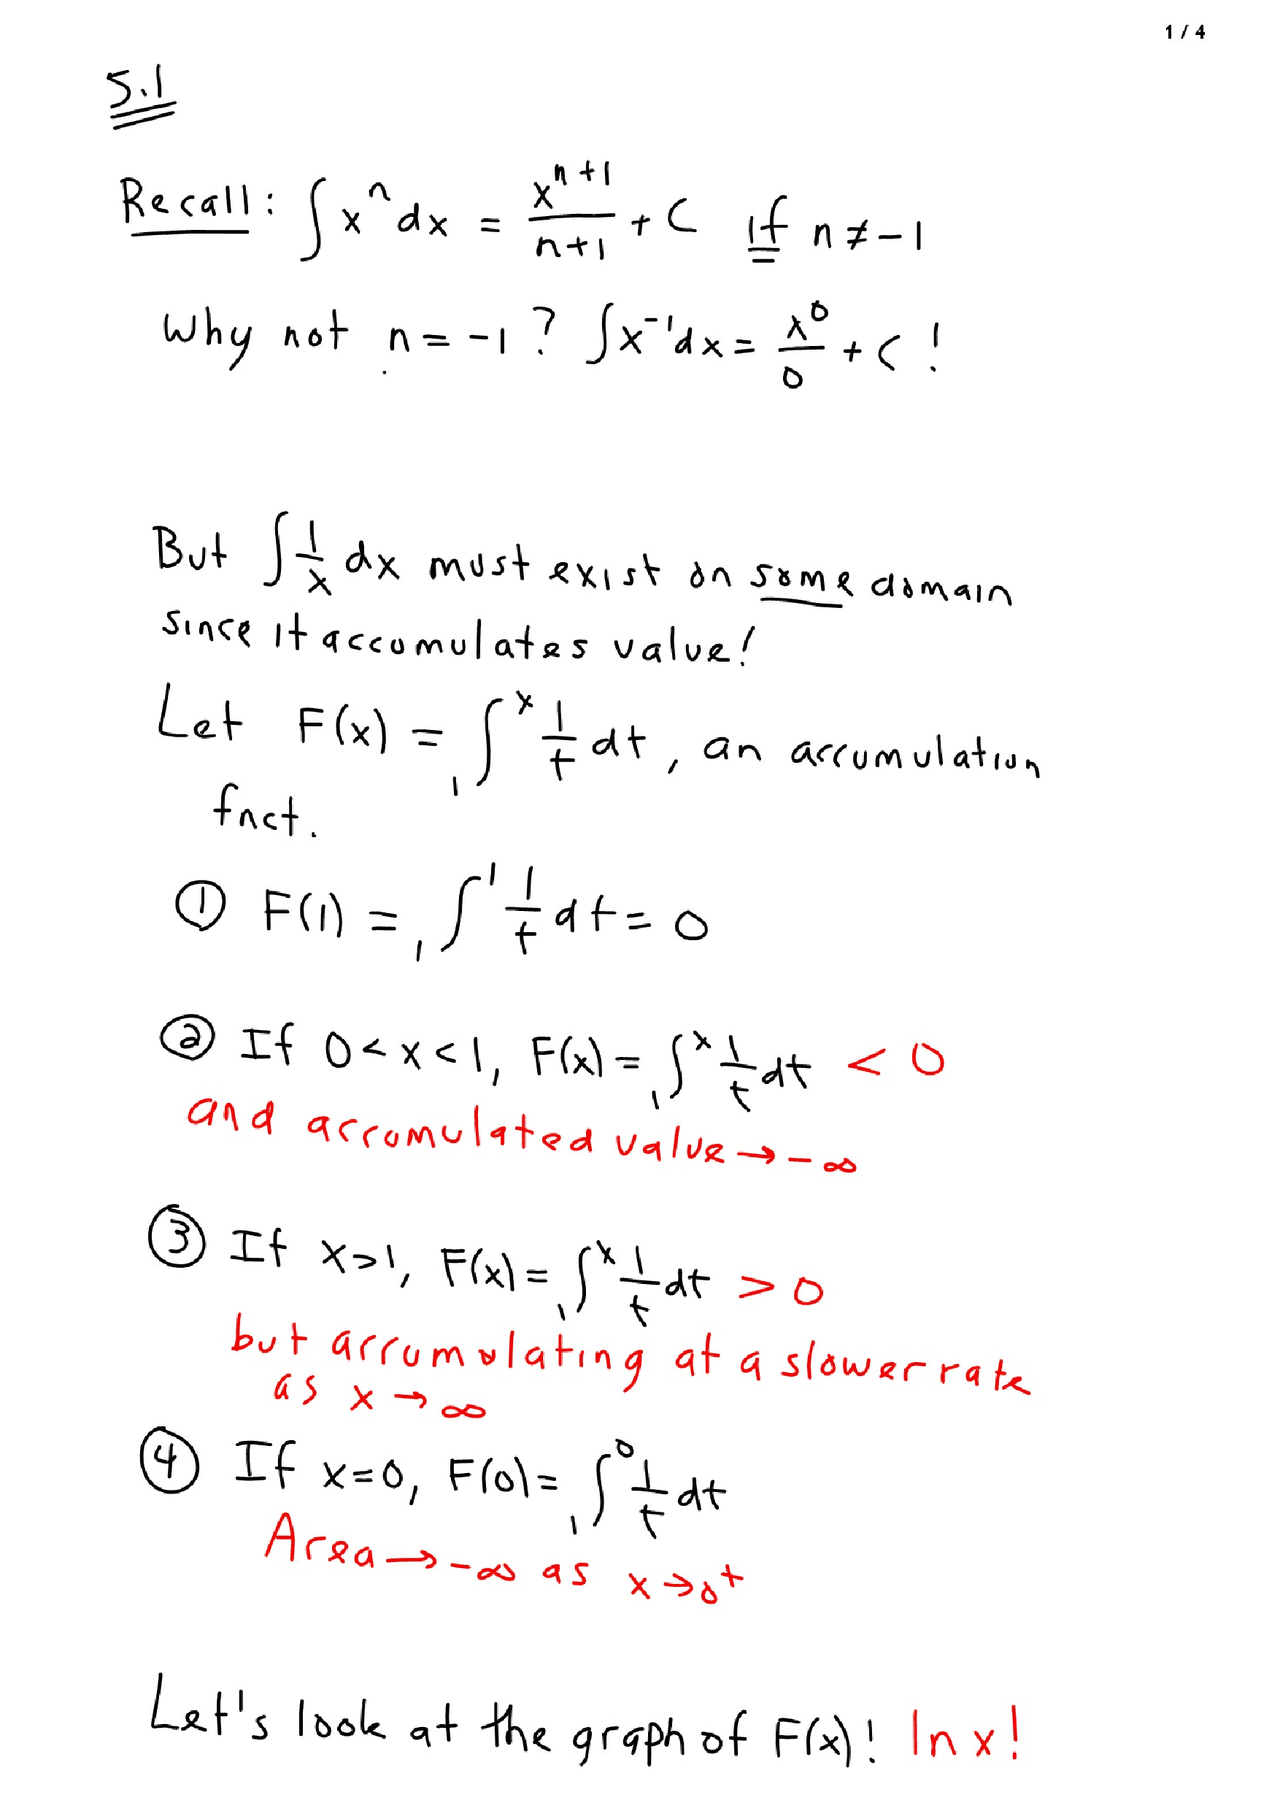 1 / 4
5.1
Recall: ∫ xⁿ dx = xⁿ⁺¹/(n+1) + C if n ≠ -1
Why not n = -1 ? ∫ x⁻¹ dx = x⁰/0 + C !
But ∫ 1/x dx must exist on some domain
since it accumulates value!
Let F(x) = ₁∫ˣ 1/t dt, an accumulation
fnct.
① F(1) = ₁∫¹ 1/t dt = 0
② If 0 < x < 1, F(x) = ₁∫ˣ 1/t dt < 0
and accumulated value → -∞
③ If x > 1, F(x) = ₁∫ˣ 1/t dt > 0
but accumulating at a slower rate
as x → ∞
④ If x = 0, F(0) = ₁∫⁰ 1/t dt
Area → -∞ as x → 0⁺
Let's look at the graph of F(x)! ln x!